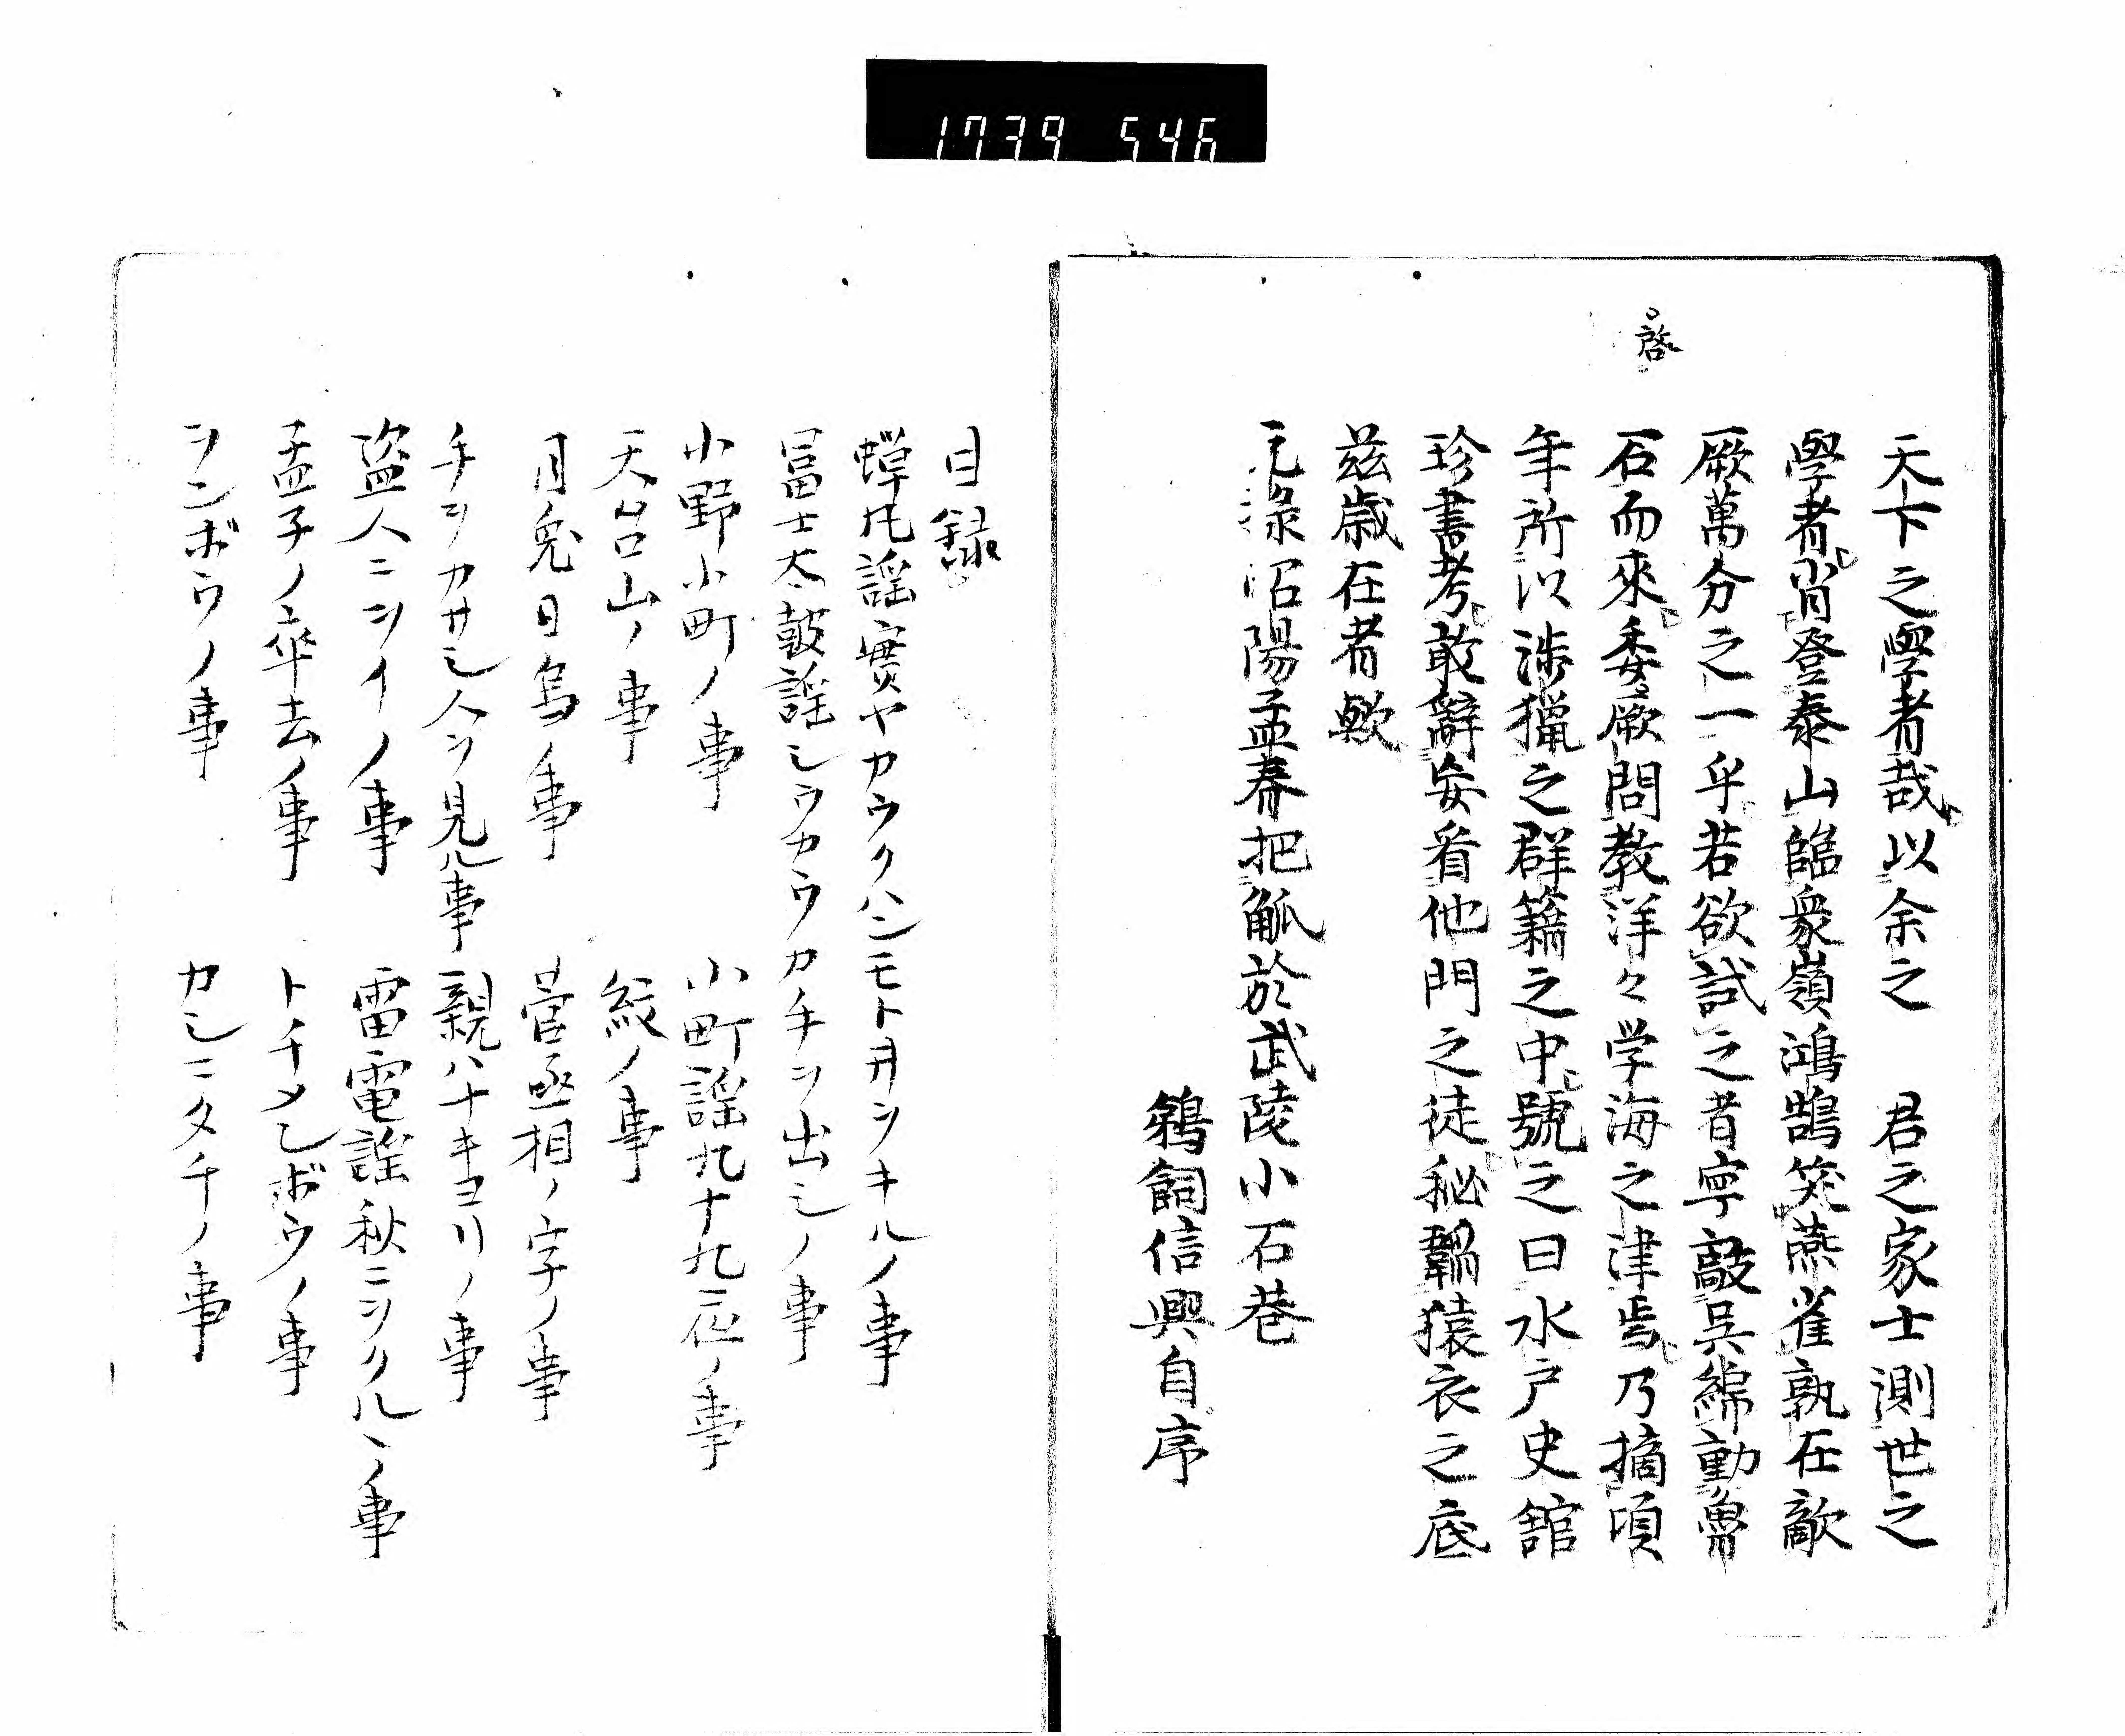 1739 546
啓
天下之學者哉以余之　君之家士測世之
學者肖登泰山臨衆嶺鴻鵠笑燕雀孰在敵
厥萬分之一乎若欲試之者寧敲吳綿動魯
石而來委厥問教洋々学海之津焉乃摘頃
年所以渉獵之群籍之中號之曰水戸史舘
珍書考敢辭妄看他門之徒秘韞猿衣之底
茲歳在者歟
元祿沼陽孟春把觚於武陵小石巷
鵜飼信興自序
目録
蟬丸謡實ヤカウクハンモト井ヲキルノ事
冨士太鼓謡シウカウカチヲ出シノ事
小野小町ノ事　小町謡九十九夜ノ事
天台山ノ事　紋ノ事
月兎日烏ノ事　菅丞相ノ字ノ事
チヲカサシ人ヲ見ル事　親ハナキヨリノ事
盗人ニヲイノ事　雷電謡秋ニツクルヽノ事
孟子ノ卒去ノ事　トチメンボウノ事
シンボウノ事　カシニタチノ事